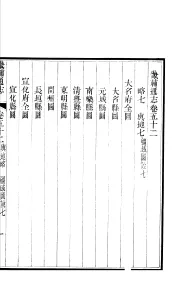 畿輔通志卷五十二
略七 輿地七 疆域圖說七
大名府全圖
大名縣圖
元城縣圖
南樂縣圖
清豐縣圖
東明縣圖
開州圖
長垣縣圖
宣化府全圖
宣化縣圖
畿輔通志
卷五十二 輿地略 疆域圖說七